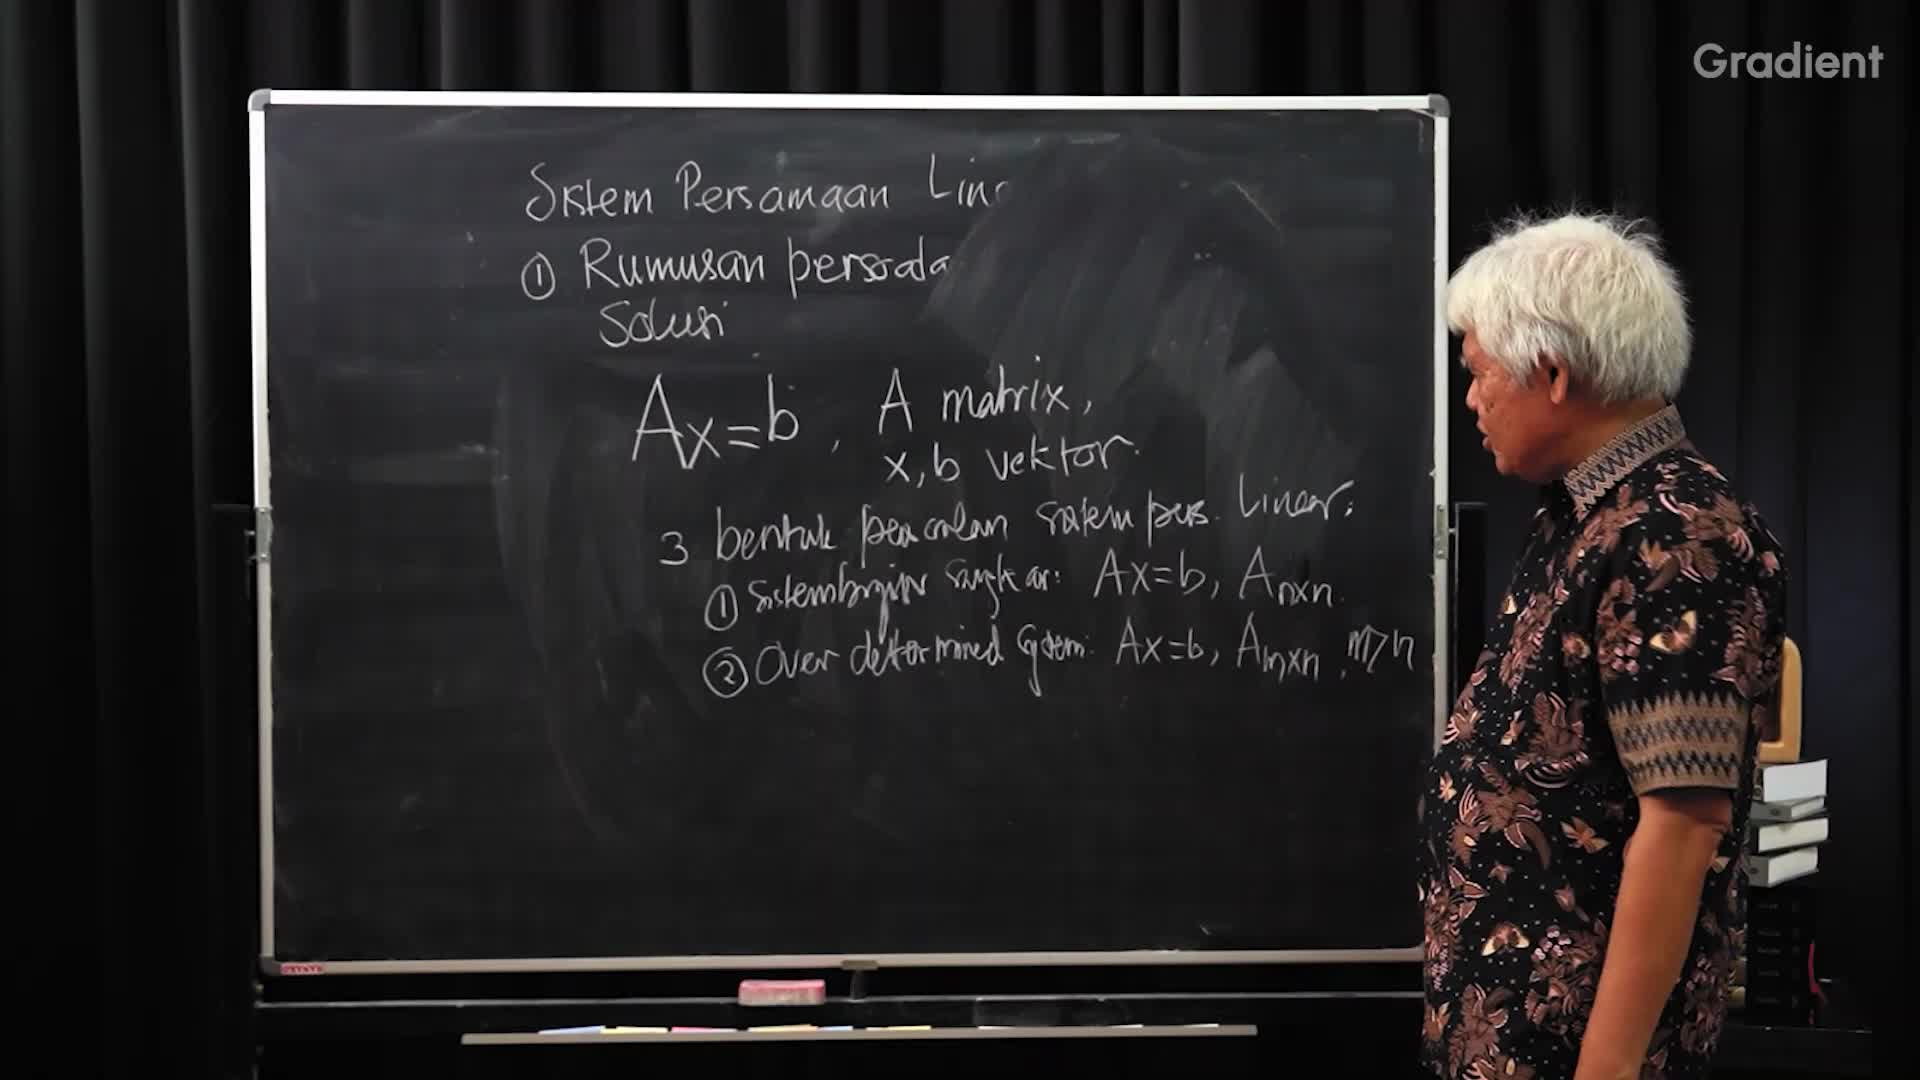 Gradient
Sistem Persamaan Linea
① Rumusan persoala
Solusi
Ax=b, A matrix,
x, b vektor.
3 bentuk sistem pers. Linear:
① Sistem bujur sangkar: Ax=b, Anxn.
② Over determined System: Ax=b, Amxn, m>n